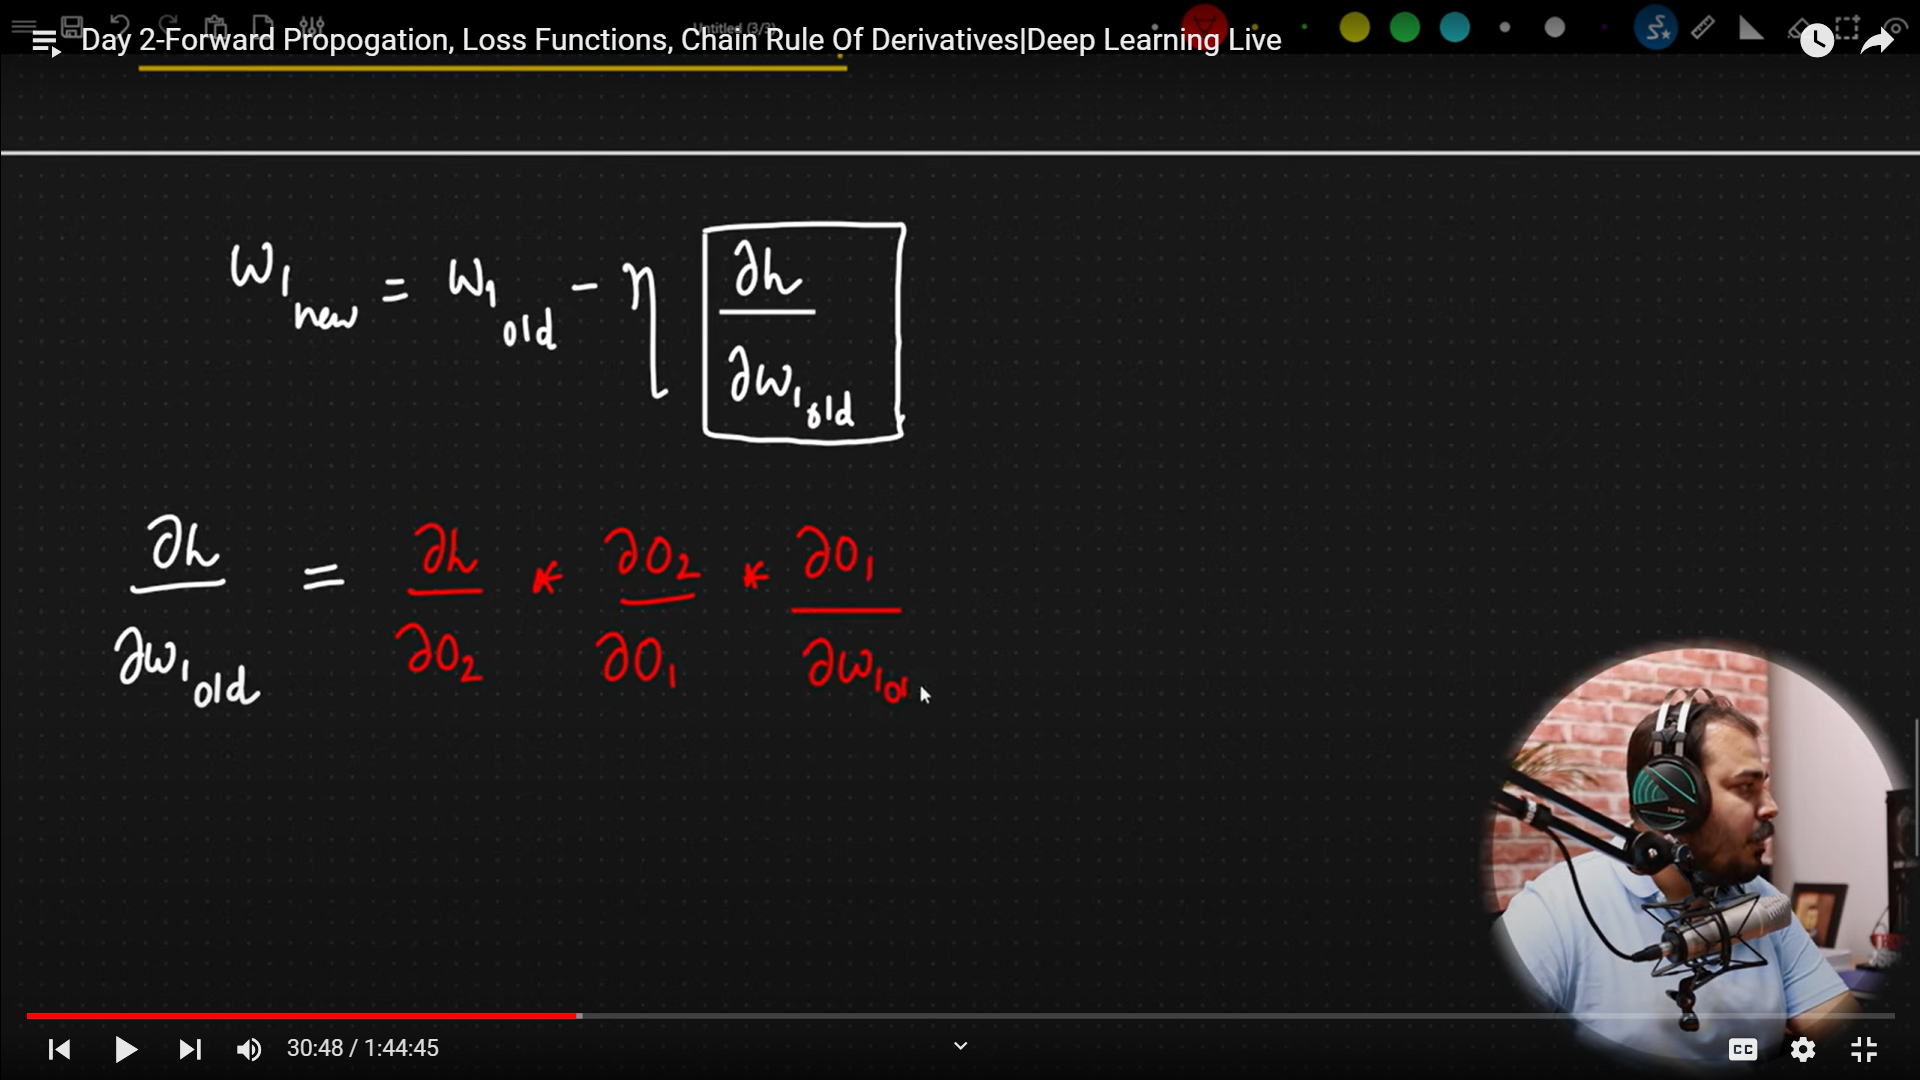 Untitled (3/3)
Day 2-Forward Propogation, Loss Functions, Chain Rule Of Derivatives|Deep Learning Live
w₁ new = w₁ old - η ∂h / ∂w₁ old
∂h / ∂w₁ old = ∂h / ∂O₂ * ∂O₂ / ∂O₁ * ∂O₁ / ∂w₁ ol
30:48 / 1:44:45
CC